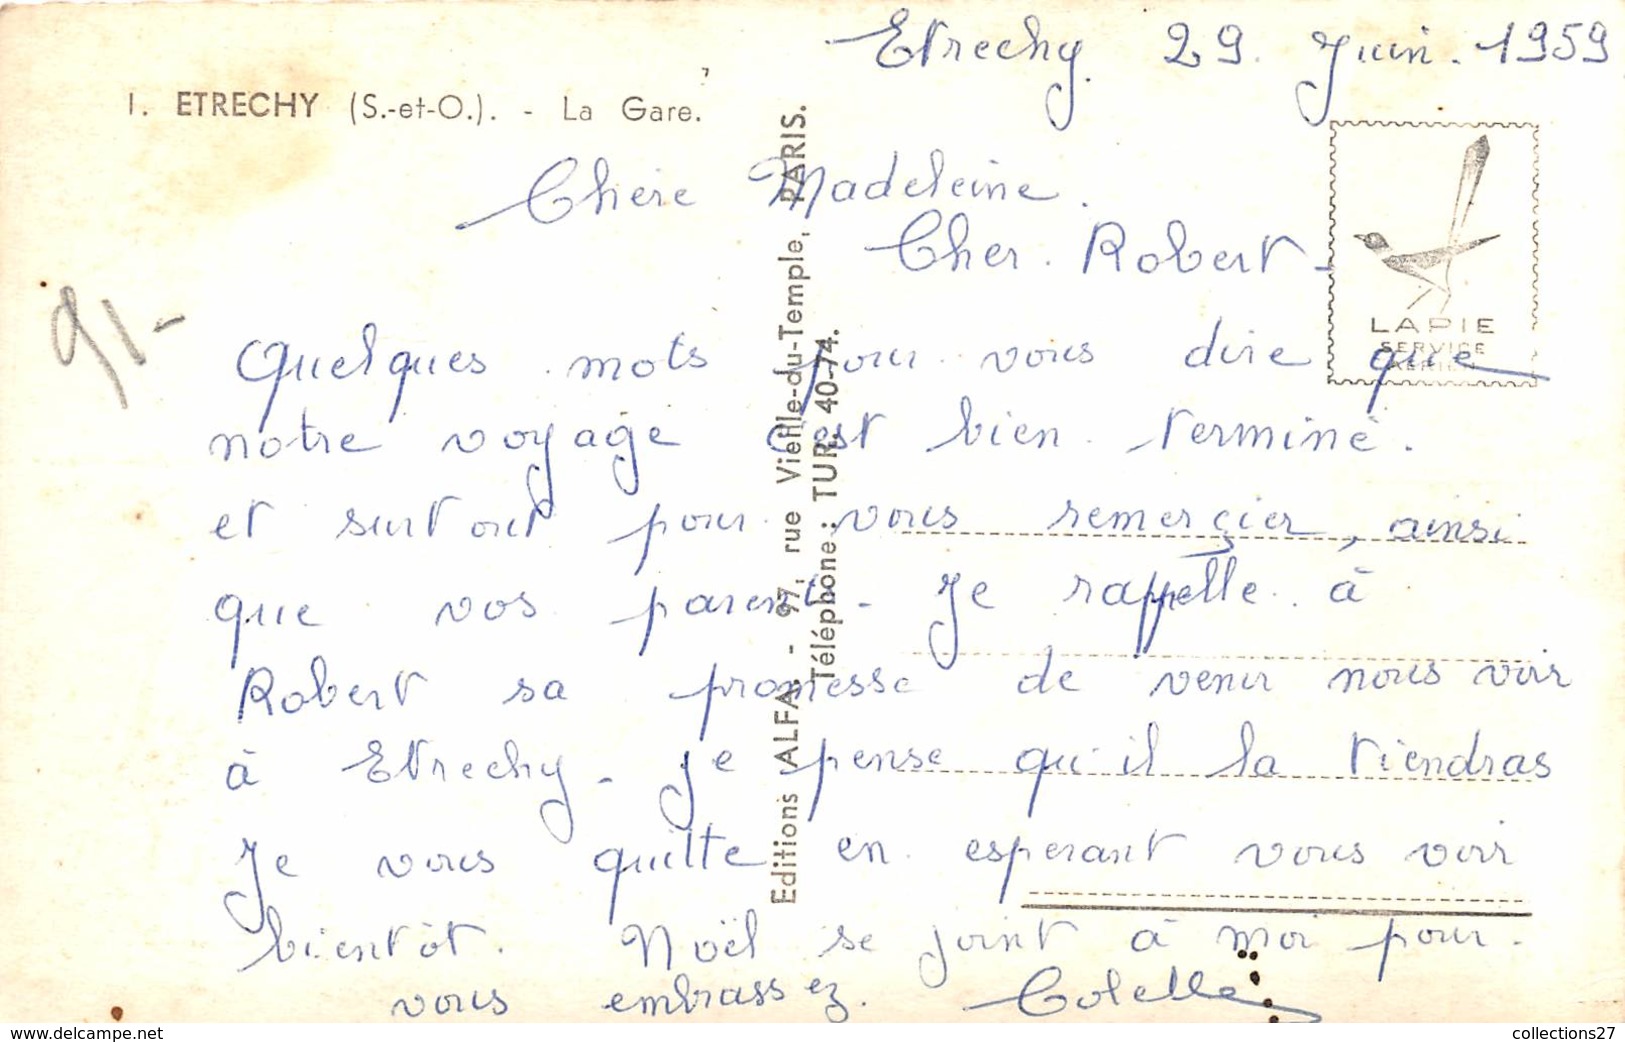 Etrechy. 29. Juin. 1959
1. ETRECHY (S.-et-O.). - La Gare.
Chère Madeleine.
Cher. Robert-
91-
Quelques mots pour vous dire que
notre voyage c'est bien terminé.
et surtout pour vous remerçier, ainsi
que vos parents- Je rappelle à
Robert sa promesse de venir nous voir
à Etrechy- je pense qu'il la tiendras
Je vous quitte en esperant vous voir
bientôt. Noël se joint à moi pour.
vous embrassez. Colette
Editions ALFA. - 97, rue Vieille-du-Temple, PARIS.
Téléphone : TUR. 40-74.
LAPIE
SERVICE
AERIEN
collections27